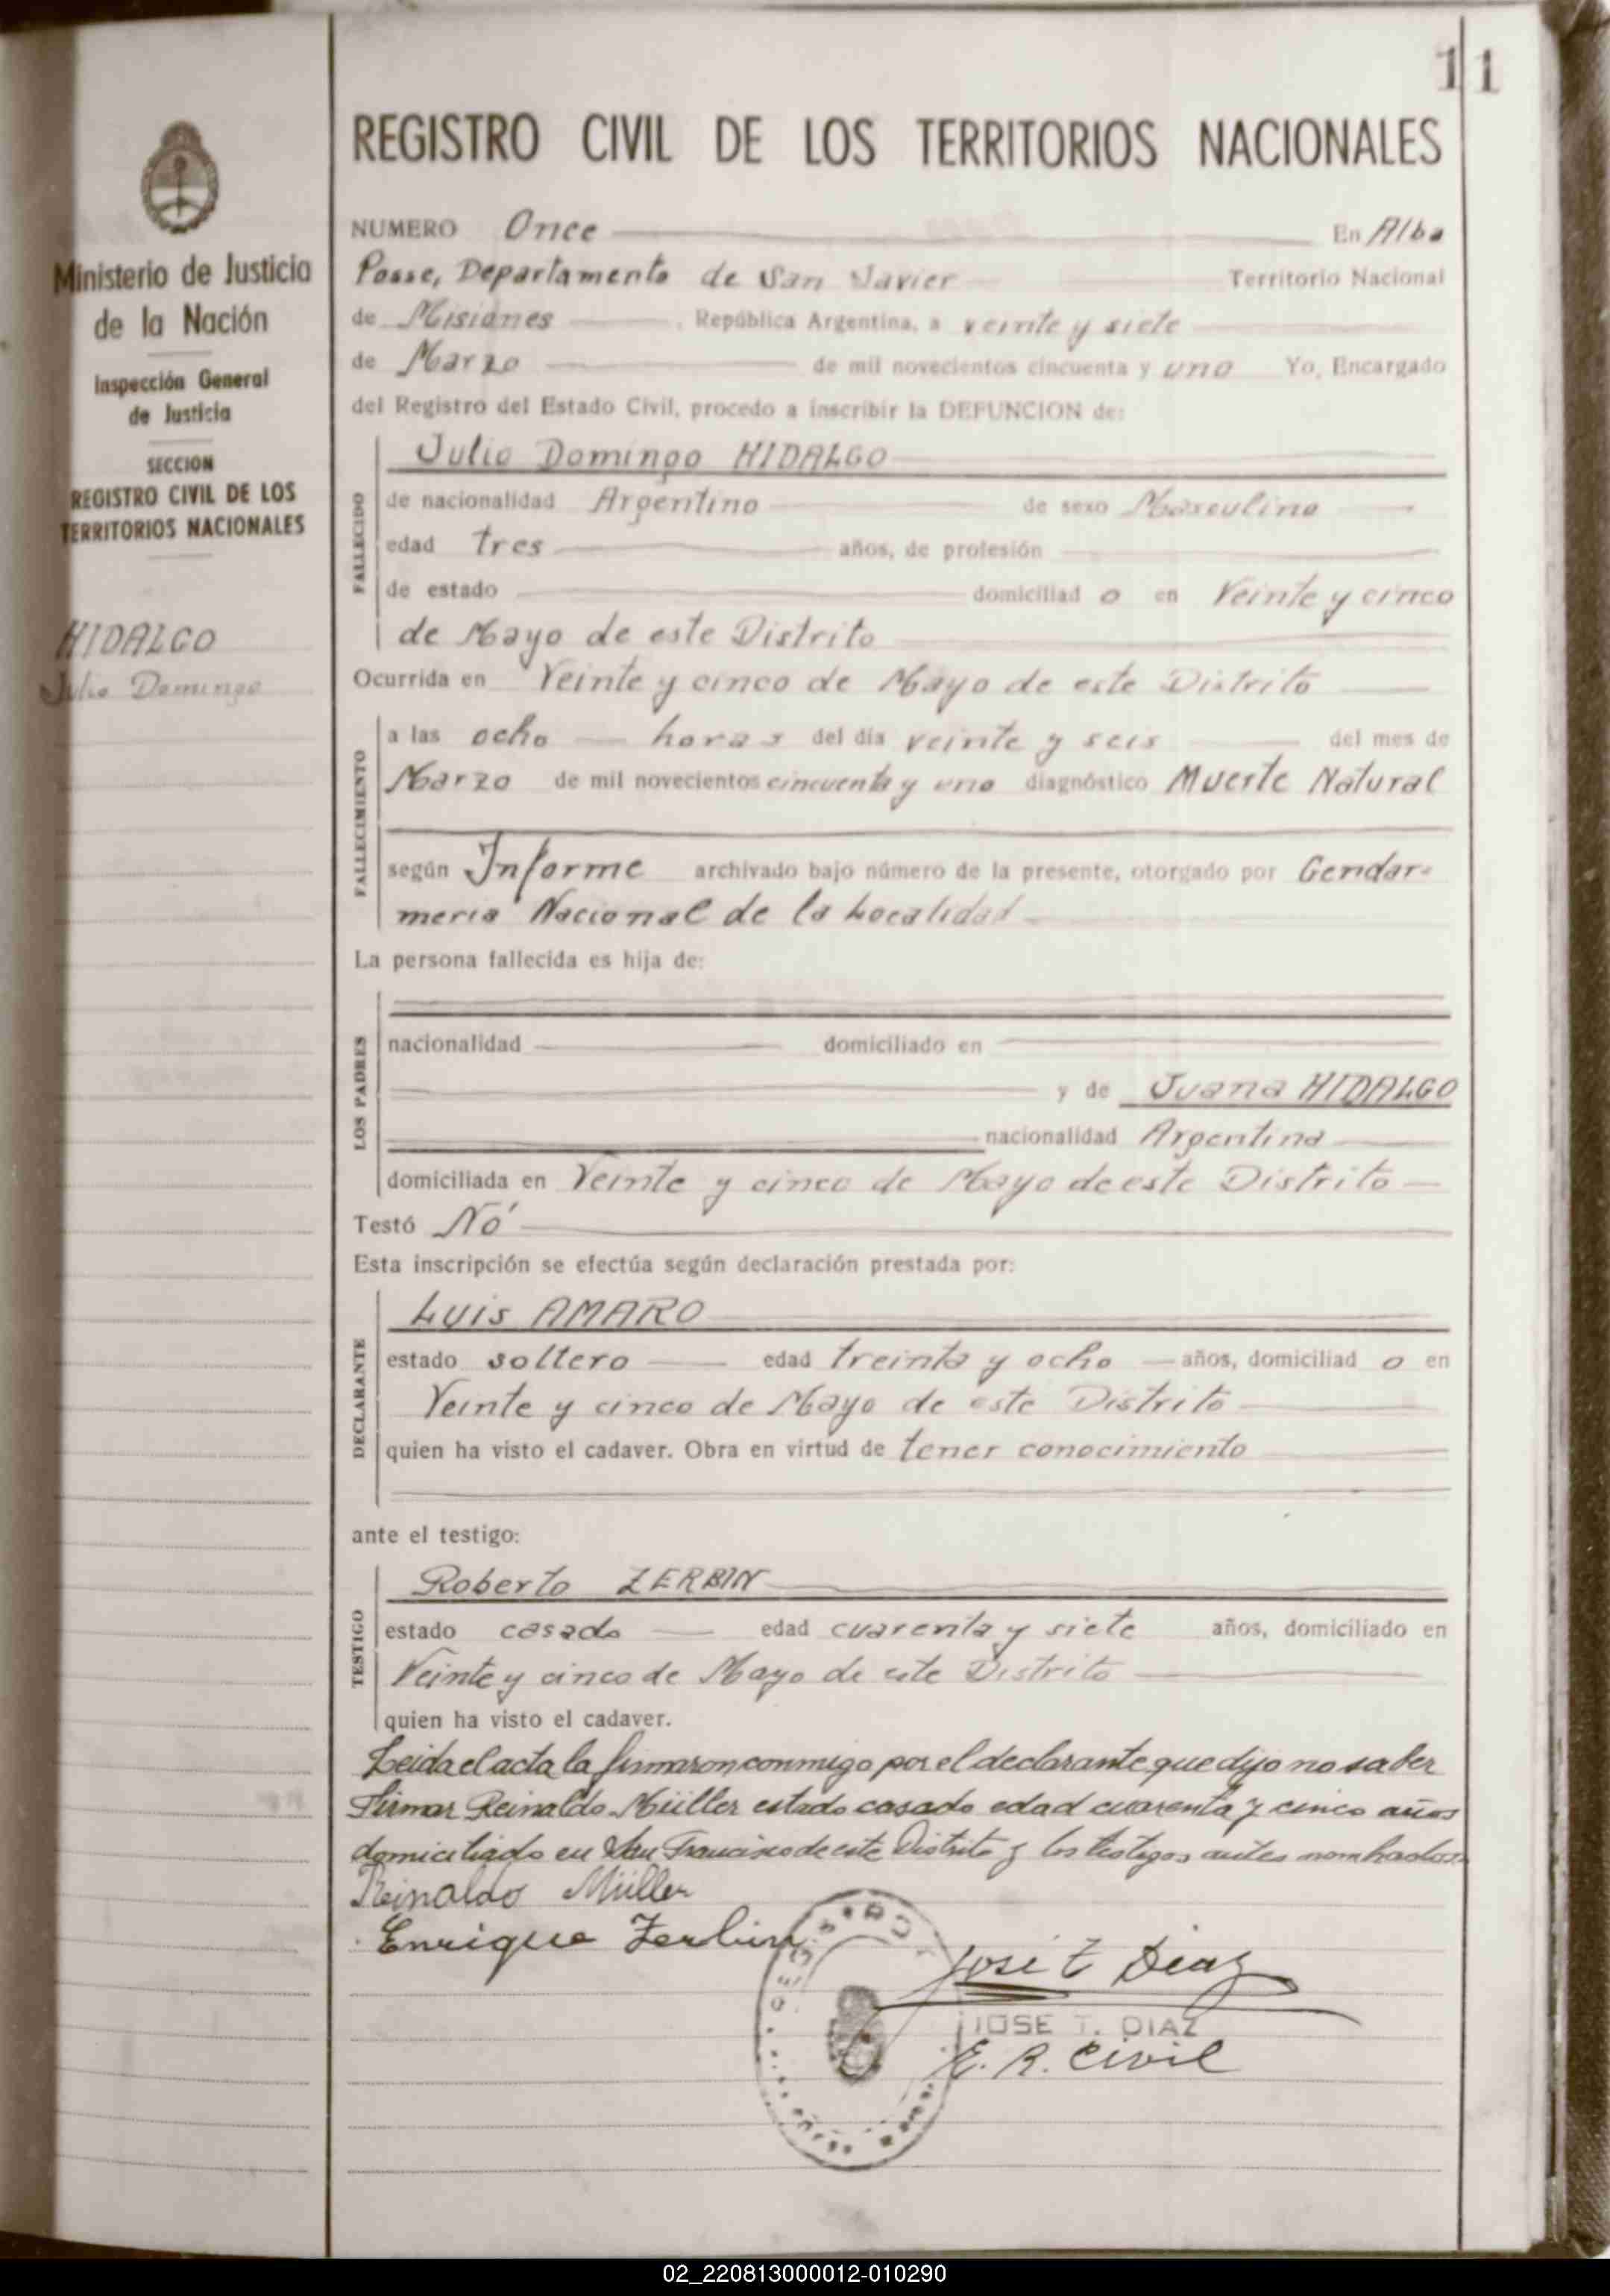 11
REGISTRO CIVIL DE LOS TERRITORIOS NACIONALES
Ministerio de Justicia
de la Nación
Inspección General
de Justicia
SECCION
REGISTRO CIVIL DE LOS
TERRITORIOS NACIONALES
HIDALGO
Julio Domingo
NUMERO Once En Alba
Posse, Departamento de San Javier Territorio Nacional
de Misiones, República Argentina, a veinte y siete
de Marzo de mil novecientos cincuenta y uno Yo, Encargado
del Registro del Estado Civil, procedo a inscribir la DEFUNCION de:
FALLECIDO
Julio Domingo HIDALGO
de nacionalidad Argentino de sexo Masculino
edad tres años, de profesión
de estado domiciliad o en Veinte y cinco
de Mayo de este Distrito
Ocurrida en Veinte y cinco de Mayo de este Distrito
FALLECIMIENTO
a las ocho horas del día veinte y seis del mes de
Marzo de mil novecientos cincuenta y uno diagnóstico Muerte Natural
según Informe archivado bajo número de la presente, otorgado por Gendar-
meria Nacional de la Localidad
La persona fallecida es hija de:
LOS PADRES
nacionalidad domiciliado en
y de Juana HIDALGO
nacionalidad Argentina
domiciliada en Veinte y cinco de Mayo de este Distrito
Testó Nó
Esta inscripción se efectúa según declaración prestada por:
DECLARANTE
Luis AMARO
estado soltero edad treinta y ocho años, domiciliad o en
Veinte y cinco de Mayo de este Distrito
quien ha visto el cadaver. Obra en virtud de tener conocimiento
ante el testigo:
TESTIGO
Roberto ZERBIN
estado casado edad cuarenta y siete años, domiciliado en
Veinte y cinco de Mayo de este Distrito
quien ha visto el cadaver.
Leida el acta la firmaron conmigo por el declarante que dijo no saber
firmar Reinaldo Müller estado casado edad cuarenta y cinco años
domiciliado en San Francisco de este Distrito y los testigos antes nombrados
Reinaldo Müller
Enrique Zerbin
José T Diaz
JOSE T. DIAZ
E. R. Civil
02_220813000012-010290